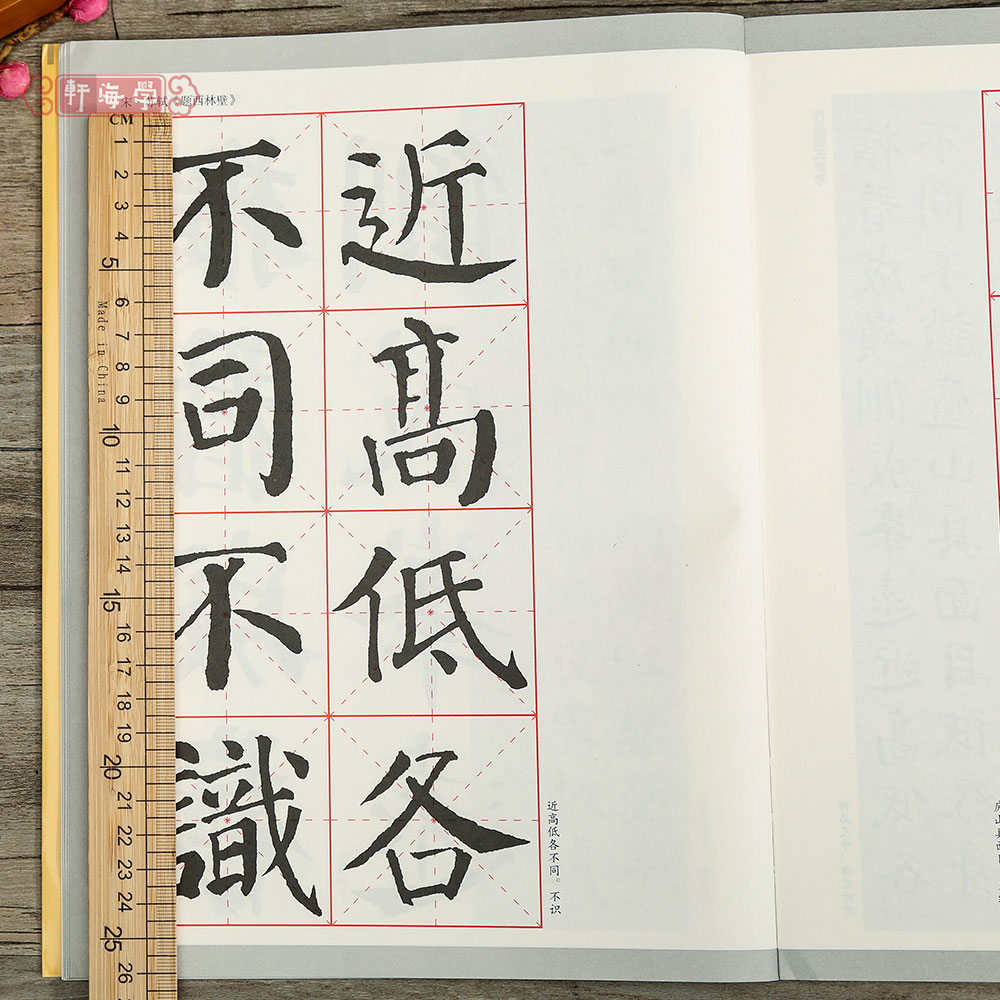 學海軒
宋·苏轼《题西林壁》
近高低各
不同不識
近高低各不同。不识
CM
1
2
3
4
5
6
7
8
9
10
11
12
13
14
15
16
17
18
19
20
21
22
23
24
25
26
Made in China